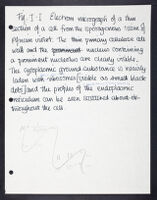 Fig. I.I Electron micrograph of a thin
section of a cell from the sporogenous tissue of
The thin primary cellulose
wall and the prominent nucleus containing
a prominent nucleolus are clearly visible.
The cytoplasmic ground substance is
laden with ribosomes [visible as small black
dots] and the profiles of the endoplasmic
reticulum can be seen scattered about
throughout the cell.